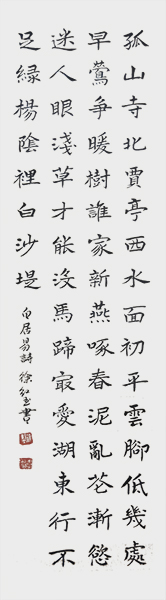 孤山寺北賈亭西水面初平雲腳低幾處
早鶯爭暖樹誰家新燕啄春泥亂花漸慾
迷人眼淺草才能沒馬蹄寂愛湖東行不
足綠楊陰裡白沙堤
白居易詩 徐紅玉書